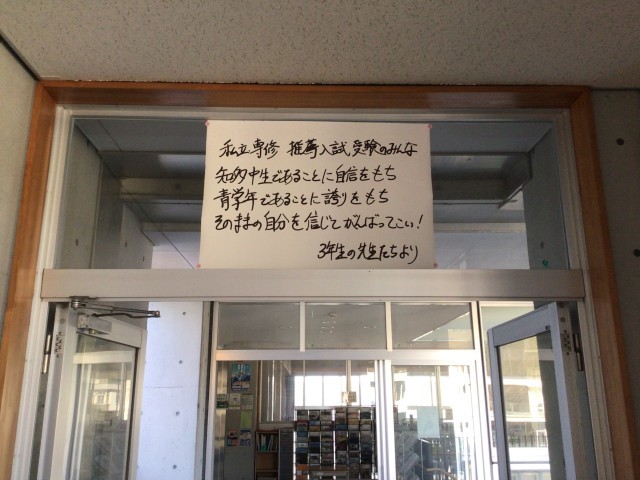 私立専修 推薦入試受験のみんな
知多中生であることに自信をもち
青学年であることに誇りをもち
そのままの自分を信じてがんばってこい!
3年生の先生たちより